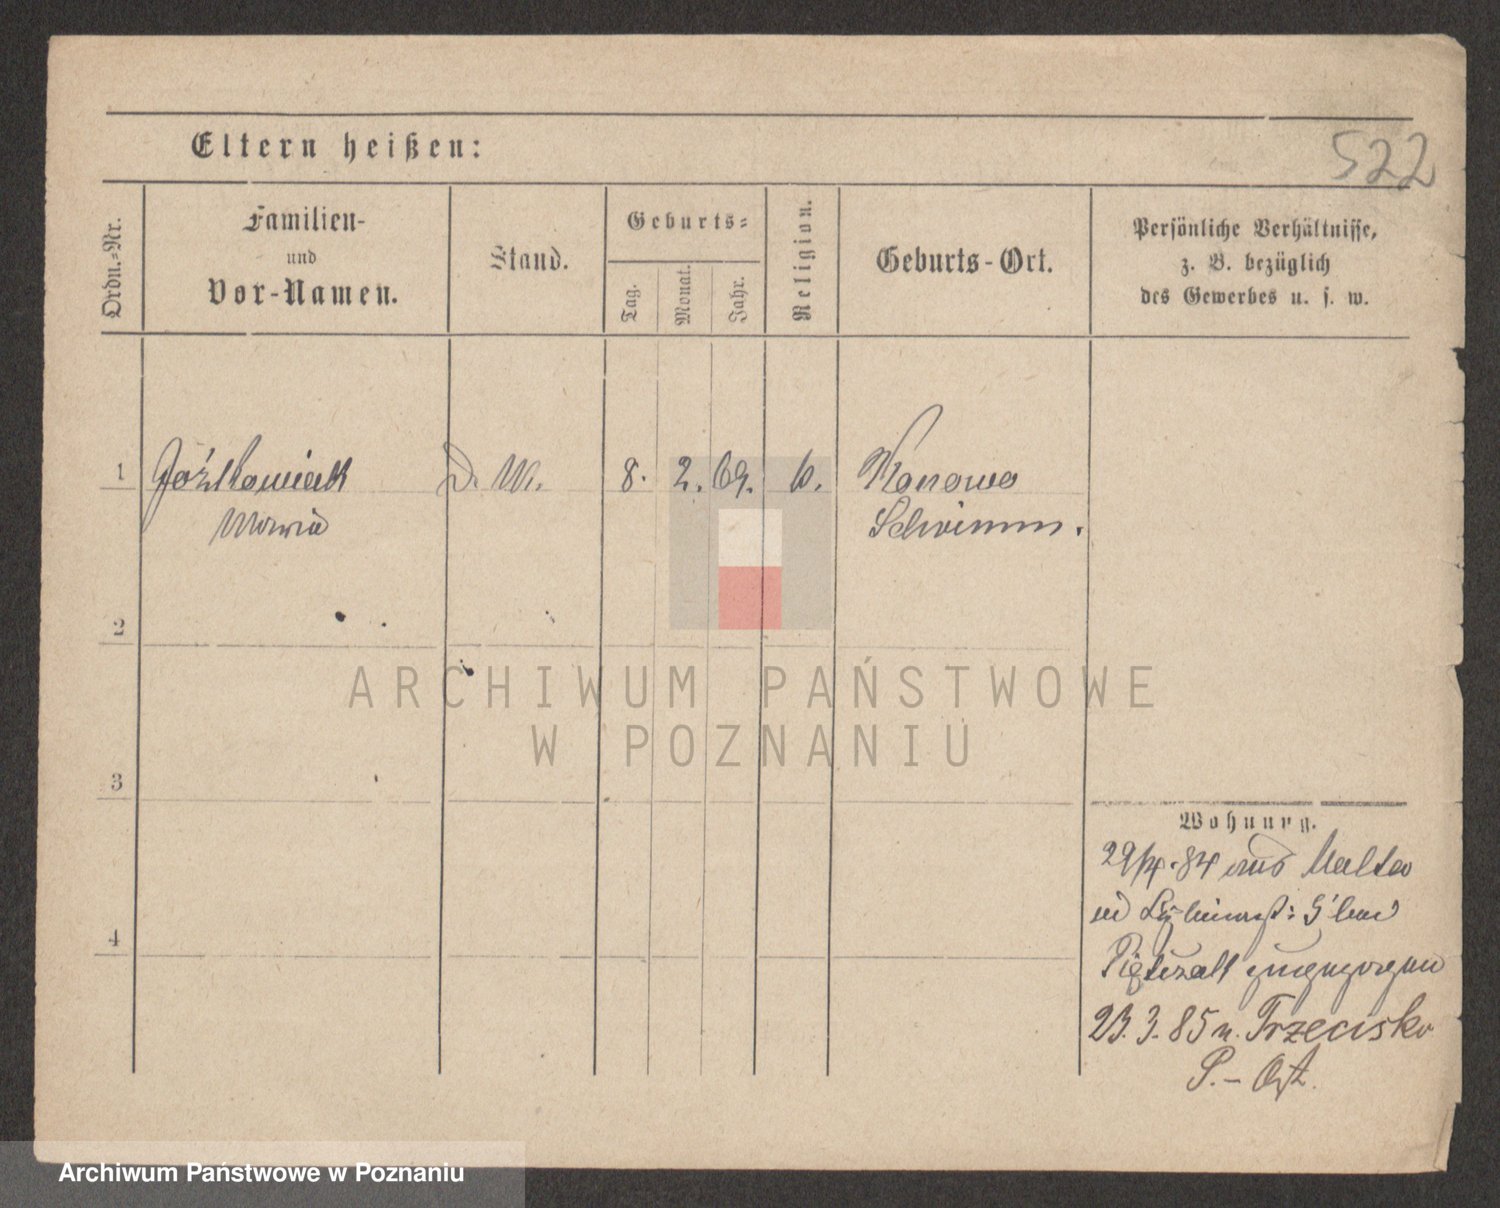 522
Eltern heißen:
Ordn.-Nr.
Familien-
und
Vor-Namen.
Stand.
Geburts-
Tag.
Monat.
Jahr.
Religion.
Geburts-Ort.
Persönliche Verhältnisse,
z. B. bezüglich
des Gewerbes u. s. w.
1
Jóźkowiak
Maria
D. M.
8.
2.
69.
k.
Konowo
Schrimm.
2
ARCHIWUM PAŃSTWOWE
W POZNANIU
3
Wohnung.
29/4.84 aus Malta
4
23.3.85 n. Trzecisko
P.- Ost.
Archiwum Państwowe w Poznaniu